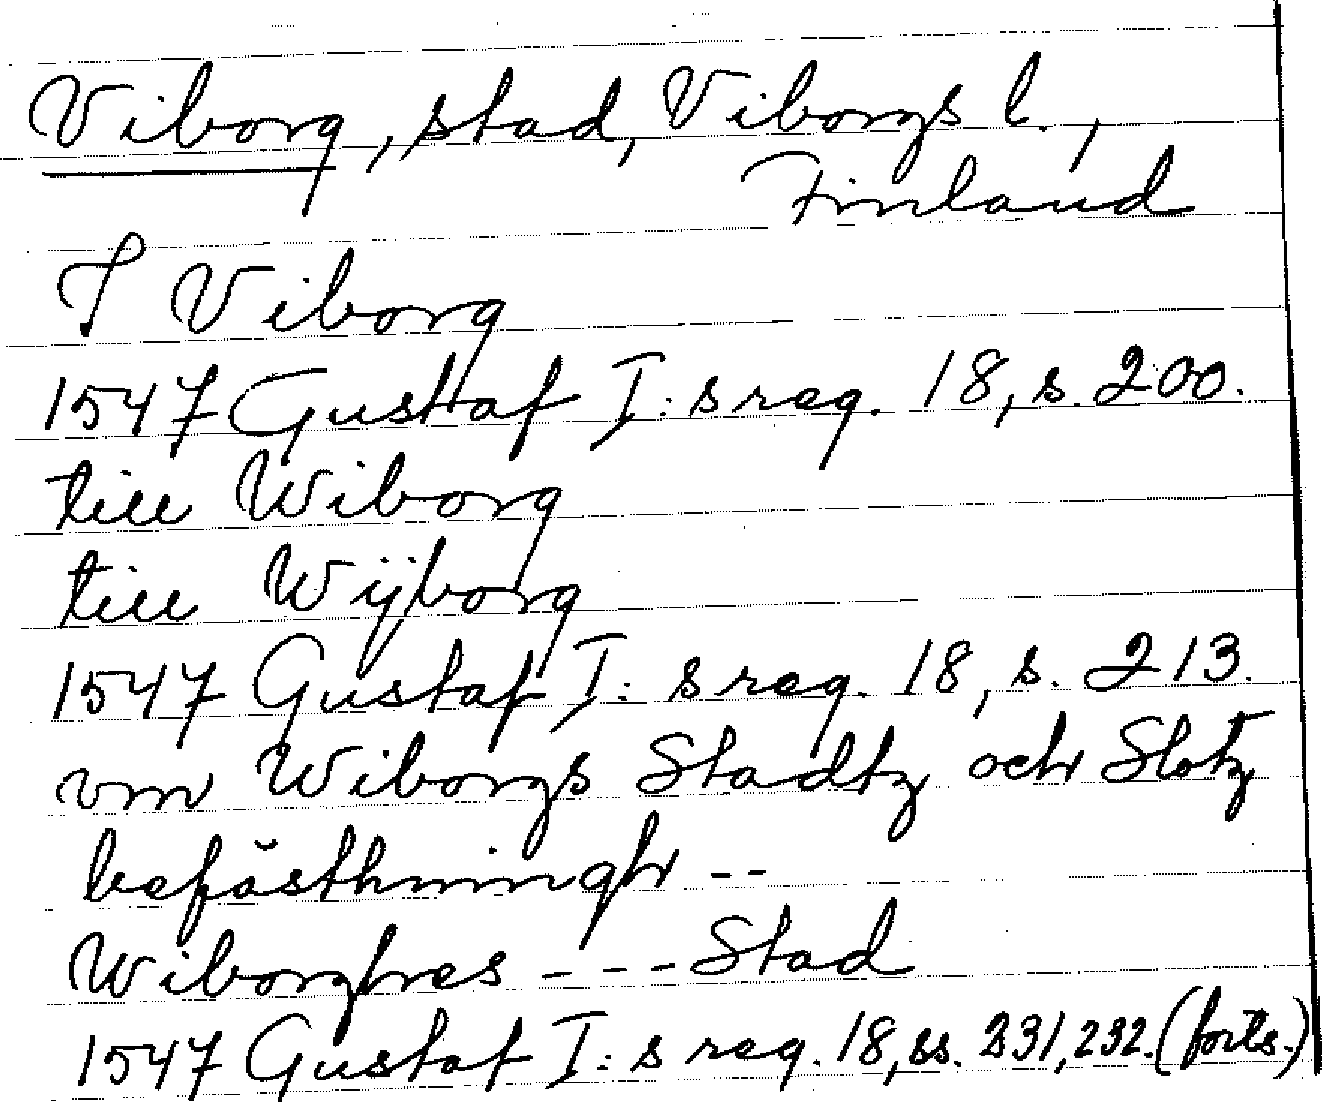 Viborg, stad, Viborgs l.,
Finland
I Viborg
1547 Gustaf I:s reg. 18, s. 200.
till Wiborg
till Wijborg
1547 Gustaf I:s reg. 18, s. 213.
vm Wiborgs Stadtz och Slotz
befästhningh --
Wiborghes --- Stad
1547 Gustaf I:s reg. 18, ss. 231, 232. (forts.)